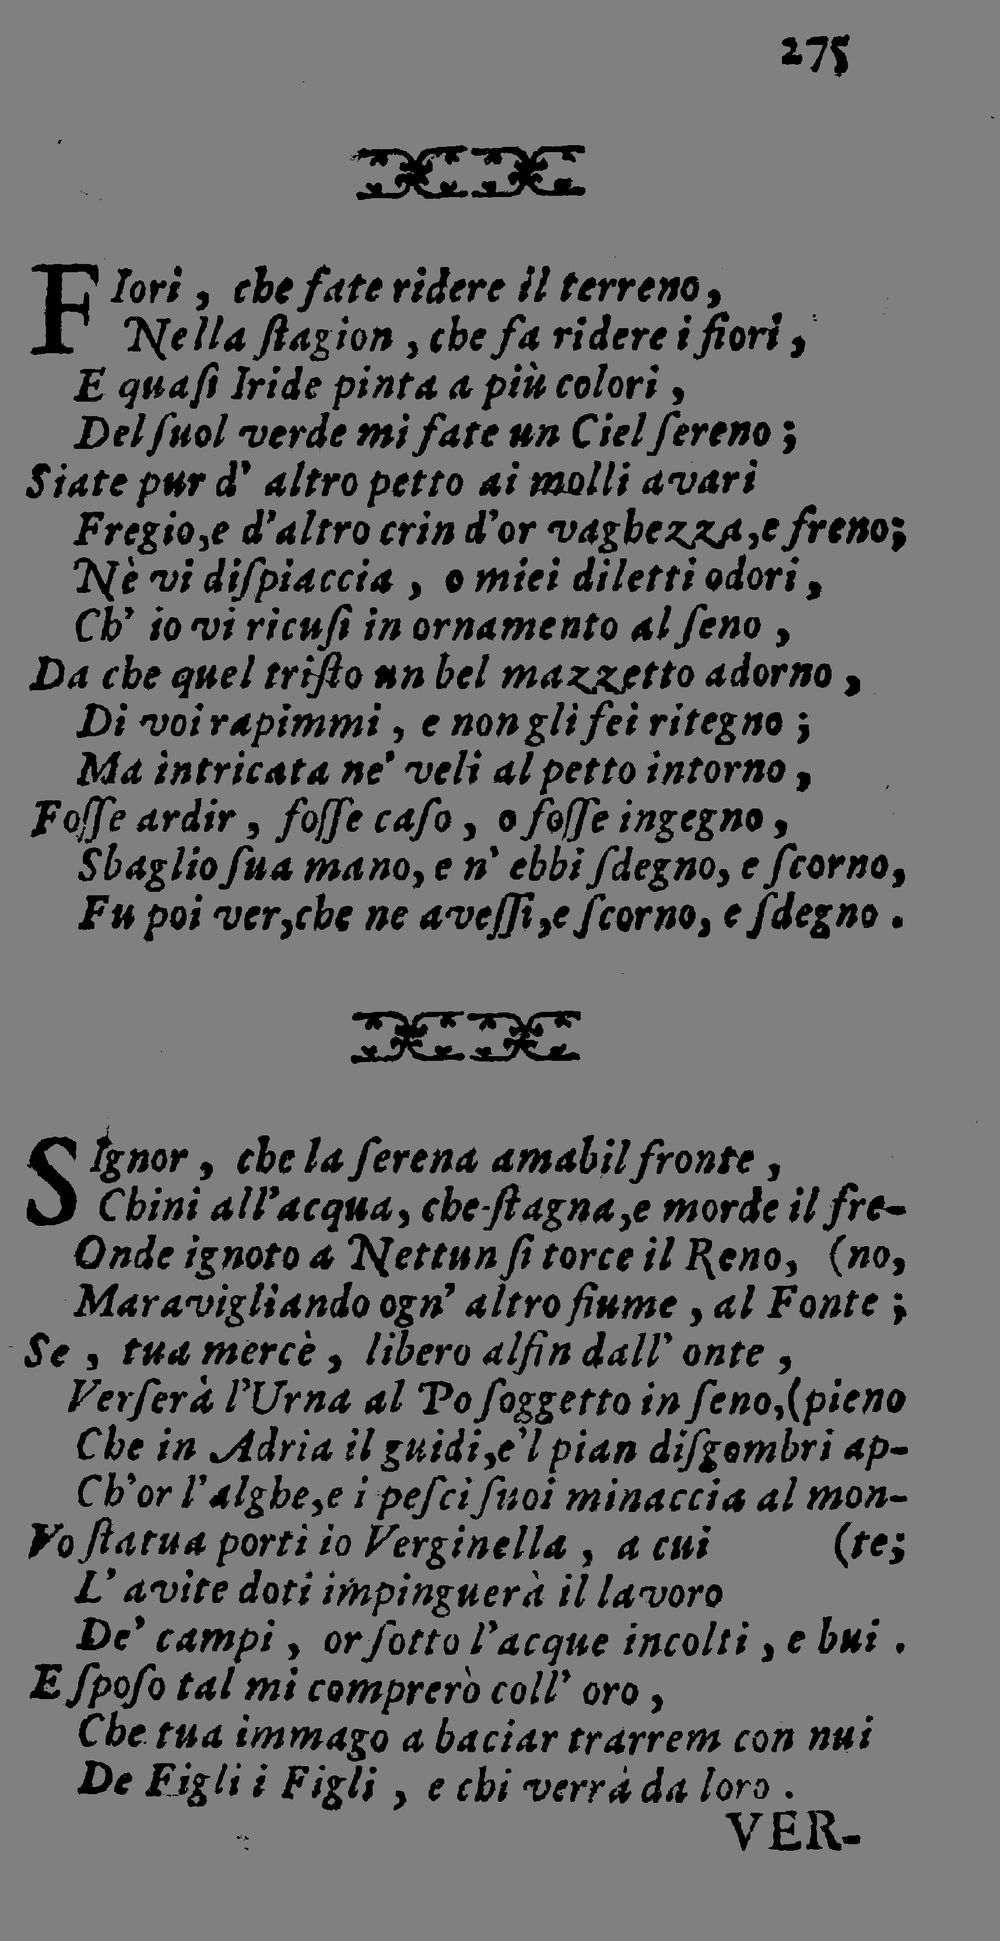 275
FIori, che fate ridere il terreno,
Nella ſtagion, che fa ridere i fiori,
E quaſi Iride pinta a più colori,
Del ſuol verde mi fate un Ciel ſereno;
Siate pur d' altro petto ai molli avari
Fregio, e d'altro crin d'or vaghezza, e freno;
Nè vi diſpiaccia, o miei diletti odori,
Ch' io vi ricuſi in ornamento al ſeno,
Da che quel triſto un bel mazzetto adorno,
Di voi rapimmi, e non gli fei ritegno;
Ma intricata ne' veli al petto intorno,
Foſſe ardir, foſſe caſo, o foſſe ingegno,
Sbaglio ſua mano, e n' ebbi ſdegno, e ſcorno,
Fu poi ver, che ne aveſſi, e ſcorno, e ſdegno.
SIgnor, che la ſerena amabil fronte,
Chini all'acqua, che ſtagna, e morde il fre-
Onde ignoto a Nettun ſi torce il Reno, (no,
Maravigliando ogn' altro fiume, al Fonte;
Se, tua mercè, libero alfin dall' onte,
Verſerà l'Urna al Po ſoggetto in ſeno, (pieno
Che in Adria il guidi, e'l pian diſgombri ap-
Ch'or l'alghe, e i peſci ſuoi minaccia al mon-
Vo ſtatua porti io Verginella, a cui (te;
L' avite doti impinguerà il lavoro
De' campi, or ſotto l'acque incolti, e bui.
E ſpoſo tal mi comprerò coll' oro,
Che tua immago a baciar trarrem con nui
De Figli i Figli, e chi verrà da loro.
VER-